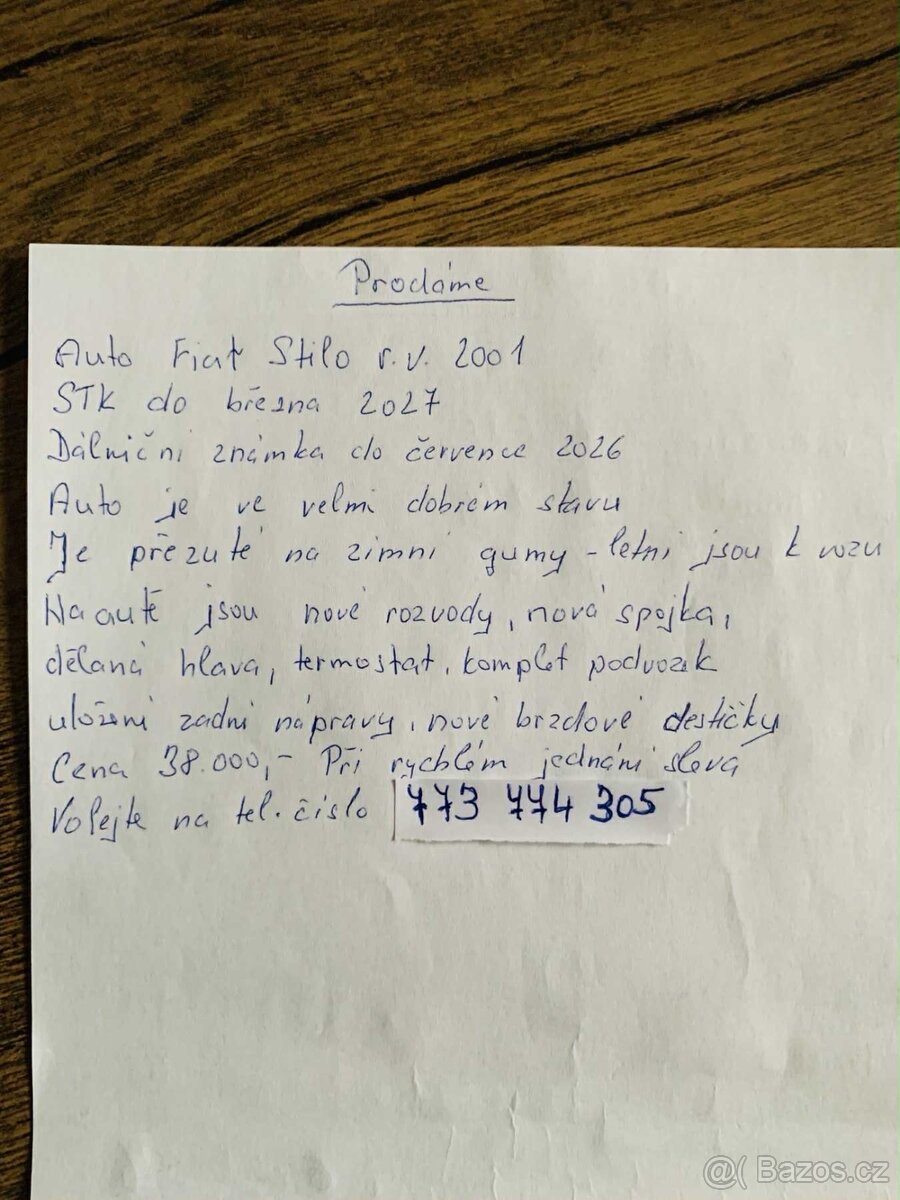 Prodáme
Auto Fiat Stilo r.v. 2001
STK do března 2027
Dálniční známka do července 2026
Auto je ve velmi dobrém stavu
Je přezuté na zimní gumy - letní jsou k vozu
Na autě jsou nové rozvody, nová spojka,
dělaná hlava, termostat, komplet podvozek
uložení zadní nápravy, nové brzdové destičky
Cena 38.000,- Při rychlém jednání sleva
Volejte na tel. číslo 773 774 305
@( Bazos.cz